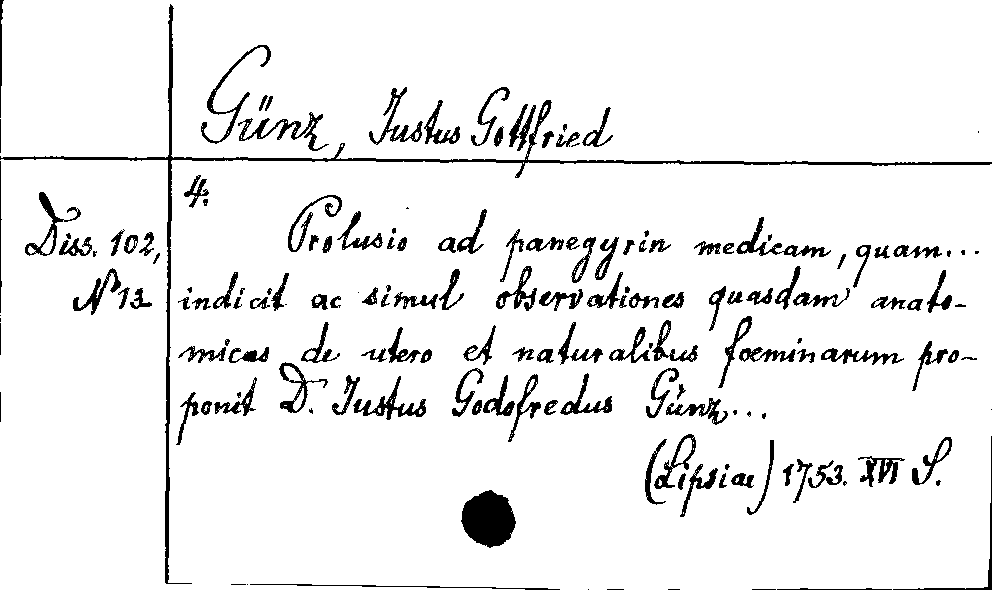 Günz, Justus Gottfried
4.
Diss. 102,
N° 13
Prolusio ad panegyrin medicam, quam...
indicit ac simul observationes quasdam anato-
micas de utero et naturalibus foeminarum pro-
ponit D. Justus Godofredus Günz...
(Lipsiae) 1753. XVI S.